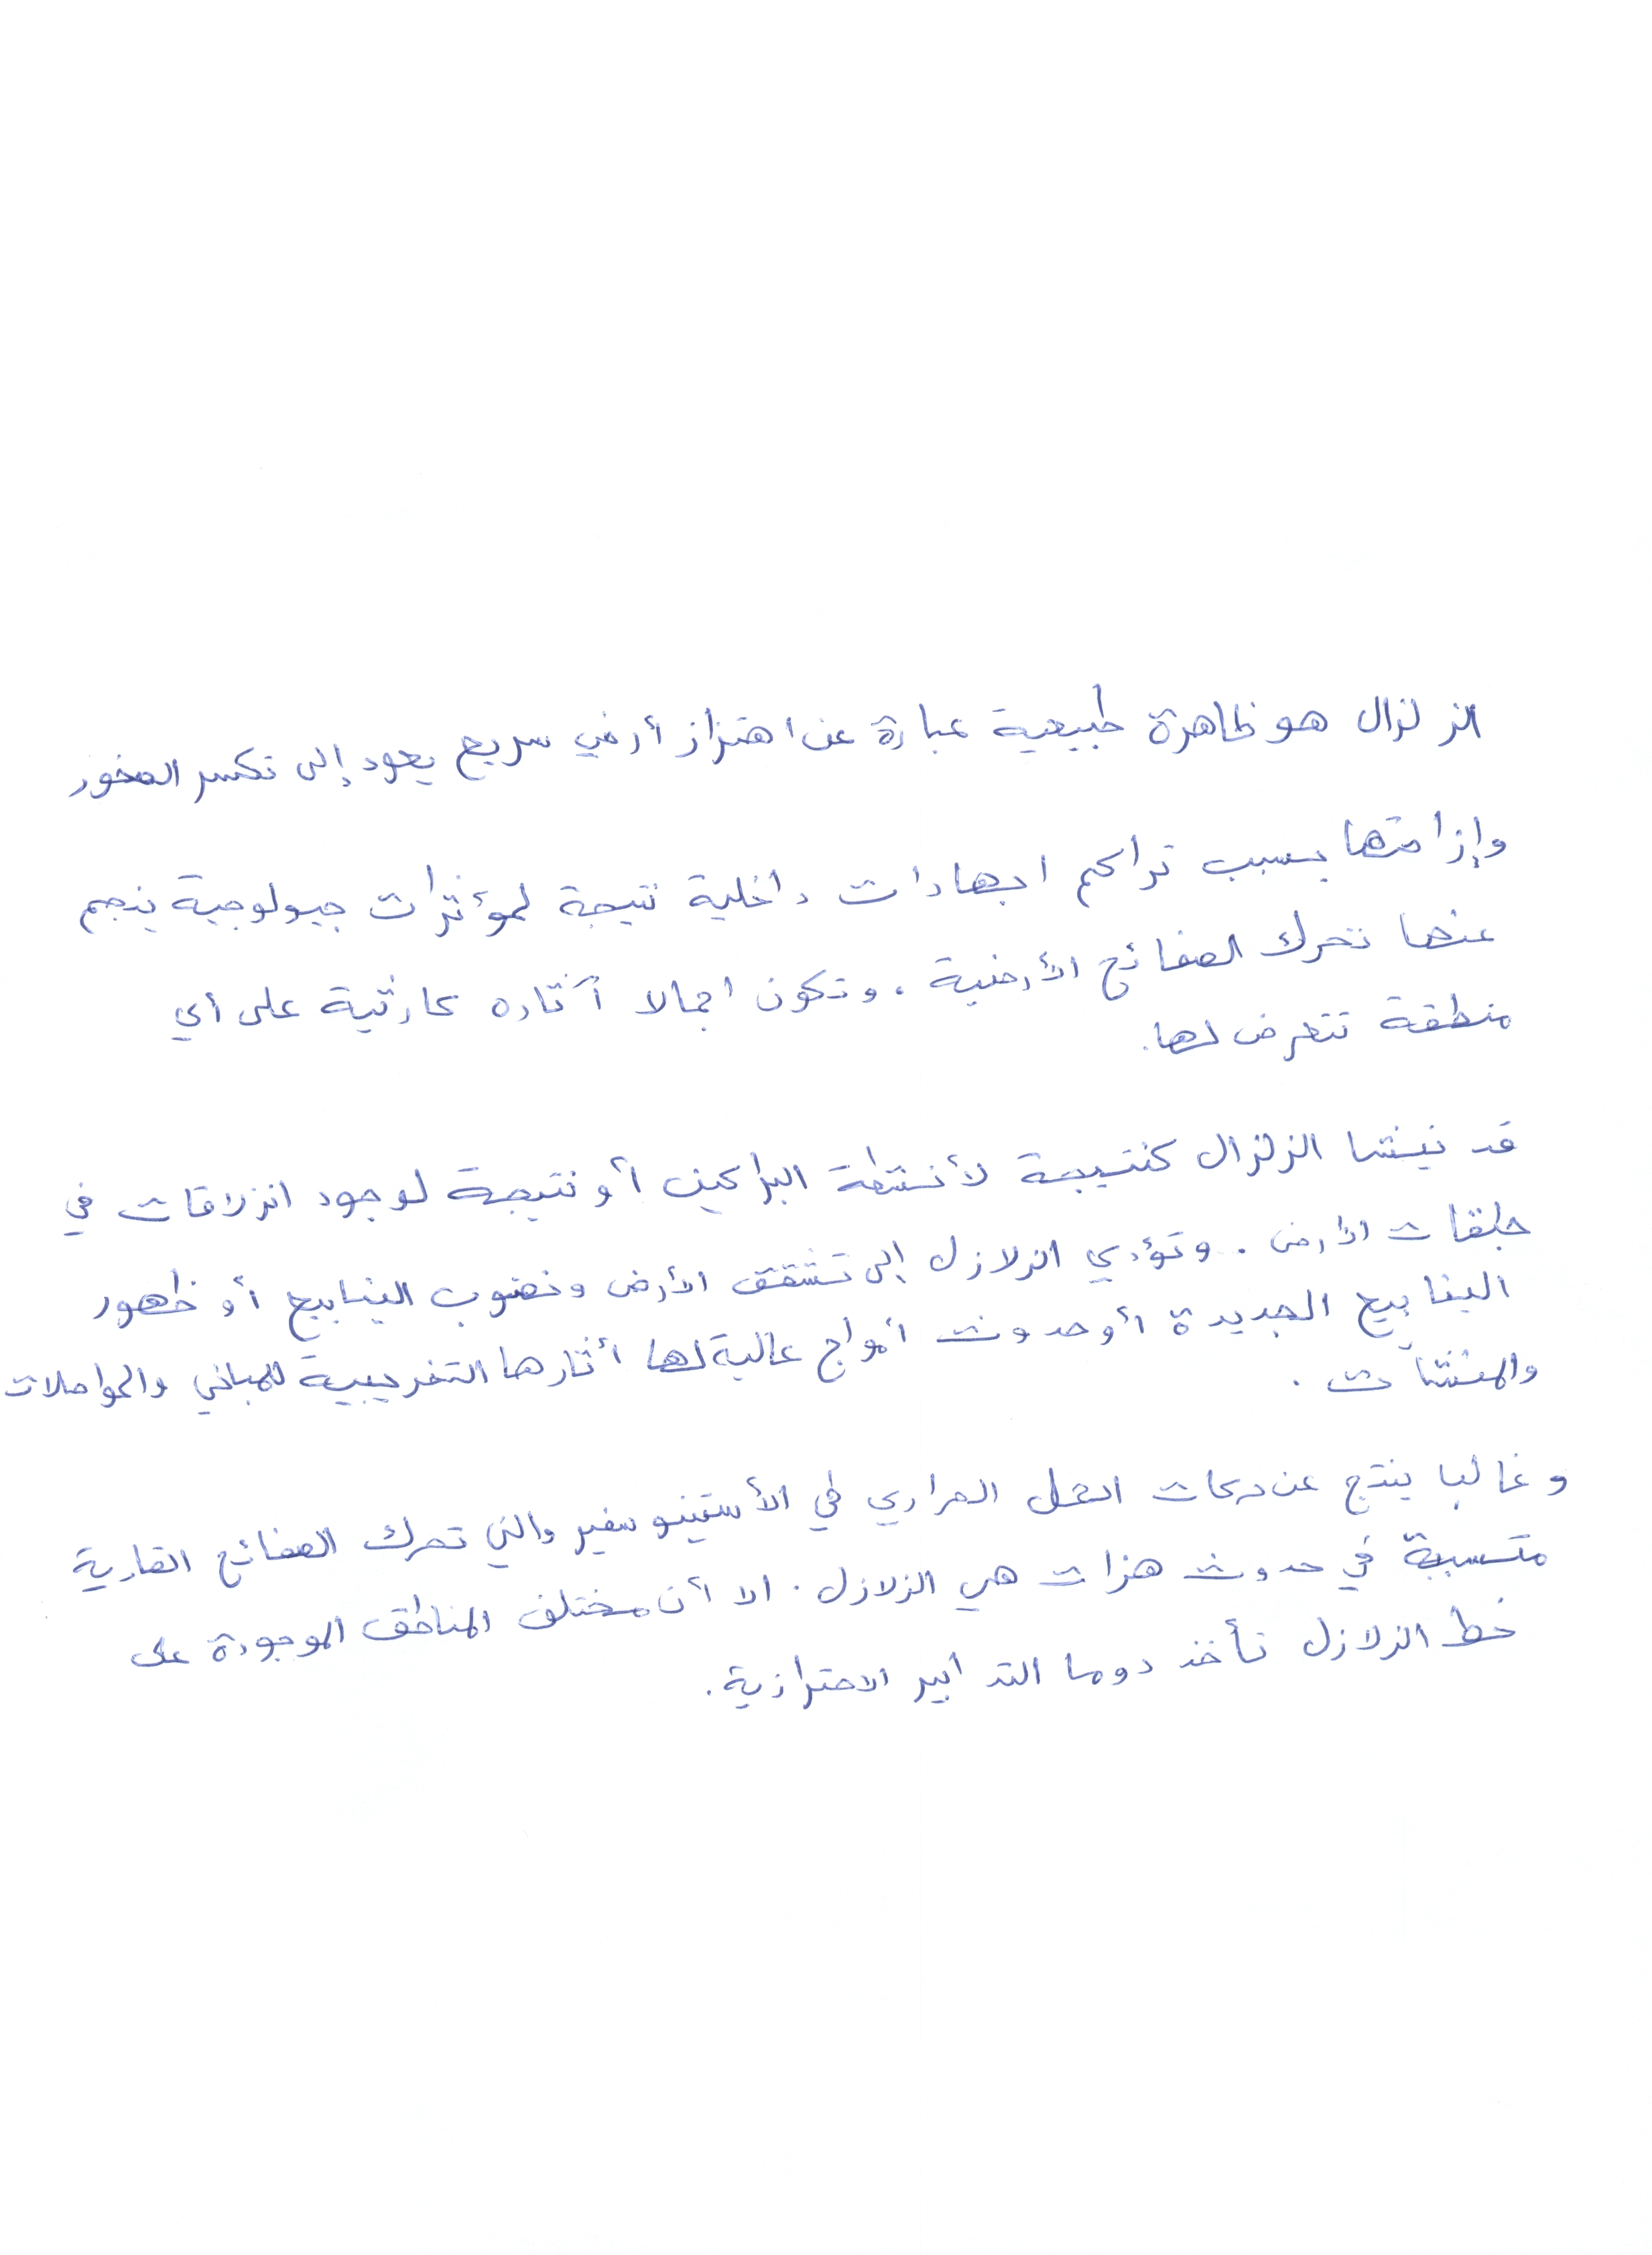 الزلزال هو ظاهرة طبيعية عبارة عن اهتزاز أرضي سريع يعود إلى تكسر الصخور
وإزاحتها بسبب تراكم اجهادات داخلية نتيجة لمؤثرات جيولوجية ينجم
عنها تحرك الصفائح الأرضية، وتكون اجمالا آثاره كارثية على أي
منطقة تتعرض لها.
قد ينشا الزلزال كنتيجة لأنشطة البراكين أو نتيجة لوجود انزلاقات في
طبقات الأرض. وتؤدي الزلازل إلى تشقق الأرض ونضوب الينابيع أو ظهور
الينابيع الجديدة أو حدوث أمواج عالية لها أثارها التخريبية للمباني والمواصلات
والمنشآت.
وغالبا ينتج عن حركات الحمل الحراري في الأستينوسفير والتي تحرك الصفائح القارية
متسببة في حدوث هزات هي الزلازل. الا أن مختلف المناطق الموجودة على
خط الزلازل تأخذ دوما التدابير الاحترازية.